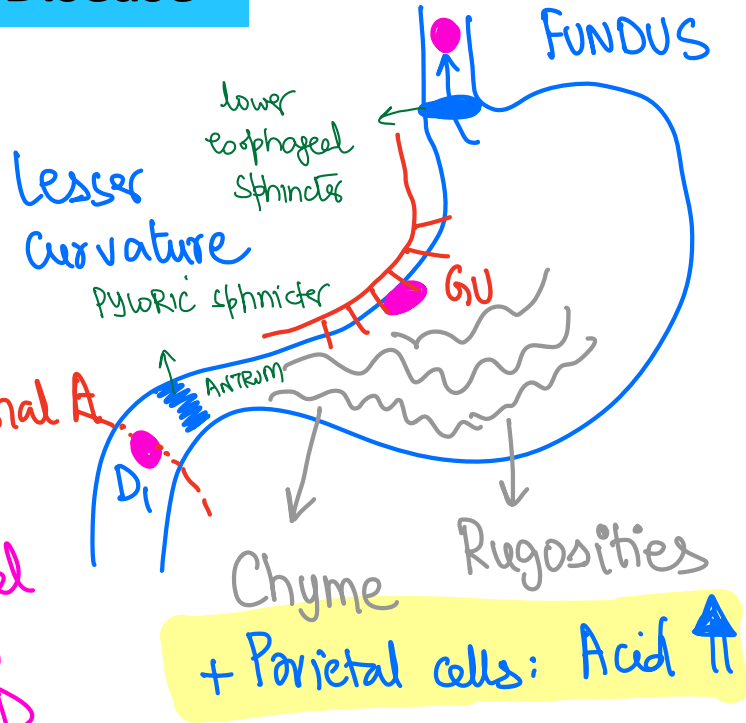 FUNDUS
lower
esophageal
sphincter
Lesser
curvature
PYLORIC sphnicter
GU
ANTRUM
nal A
D1
Chyme
Rugosities
+ Parietal cells: Acid ⇑